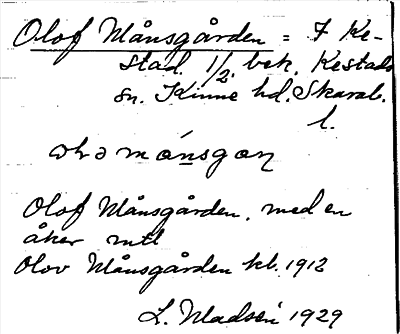 Olof Månsgården = 7 Ke-
stad. 1/2. bek. Kestads
sn. Kinne hd. Skarab.
l.
månsgaṇ
Olof Månsgården, med en
åker mtl
Olov Månsgården kb. 1912
L. Madsén 1929